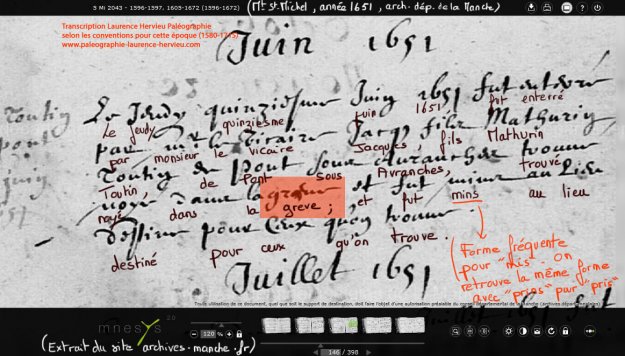 5 Mi 2043 - 1596-1597, 1603-1672 (1596-1672) (Mt St. Michel, année 1651, arch. dép. de la Manche)
Transcription Laurence Hervieu Paléographie
selon les conventions pour cette époque (1580-1715)
www.paleographie-laurence-hervieu.com
Juin 1651
Le Jeudy quinziesme Juin 1651 fut enterré
Le jeudy quinziesme juin 1651 fut enterré
Toutin
par mr le vicaire Jacq filz Mathurin
par monsieur le vicaire Jacques, fils Mathurin
pont
Toutin de Pont sous Avranches trouvé
Toutin, de Pont Sous Avranches, trouvé
juin
noyé dans la greve et fut mins au Lieu
noyé dans la greve; et fut mins au lieu
destiné pour ceux quon trouve.
destiné pour ceux qu'on trouve.
Forme fréquente
pour "mis". On
retrouve la même forme
avec "prins" pour "pris"
Juillet 1651
Toute utilisation de ce document, quel que soit le support de destination, doit faire l'objet d'une autorisation préalable du conseil départemental de la Manche (archives départementales)
mnesys 20
120 %
146 / 398
(Extrait du site archives-manche.fr)